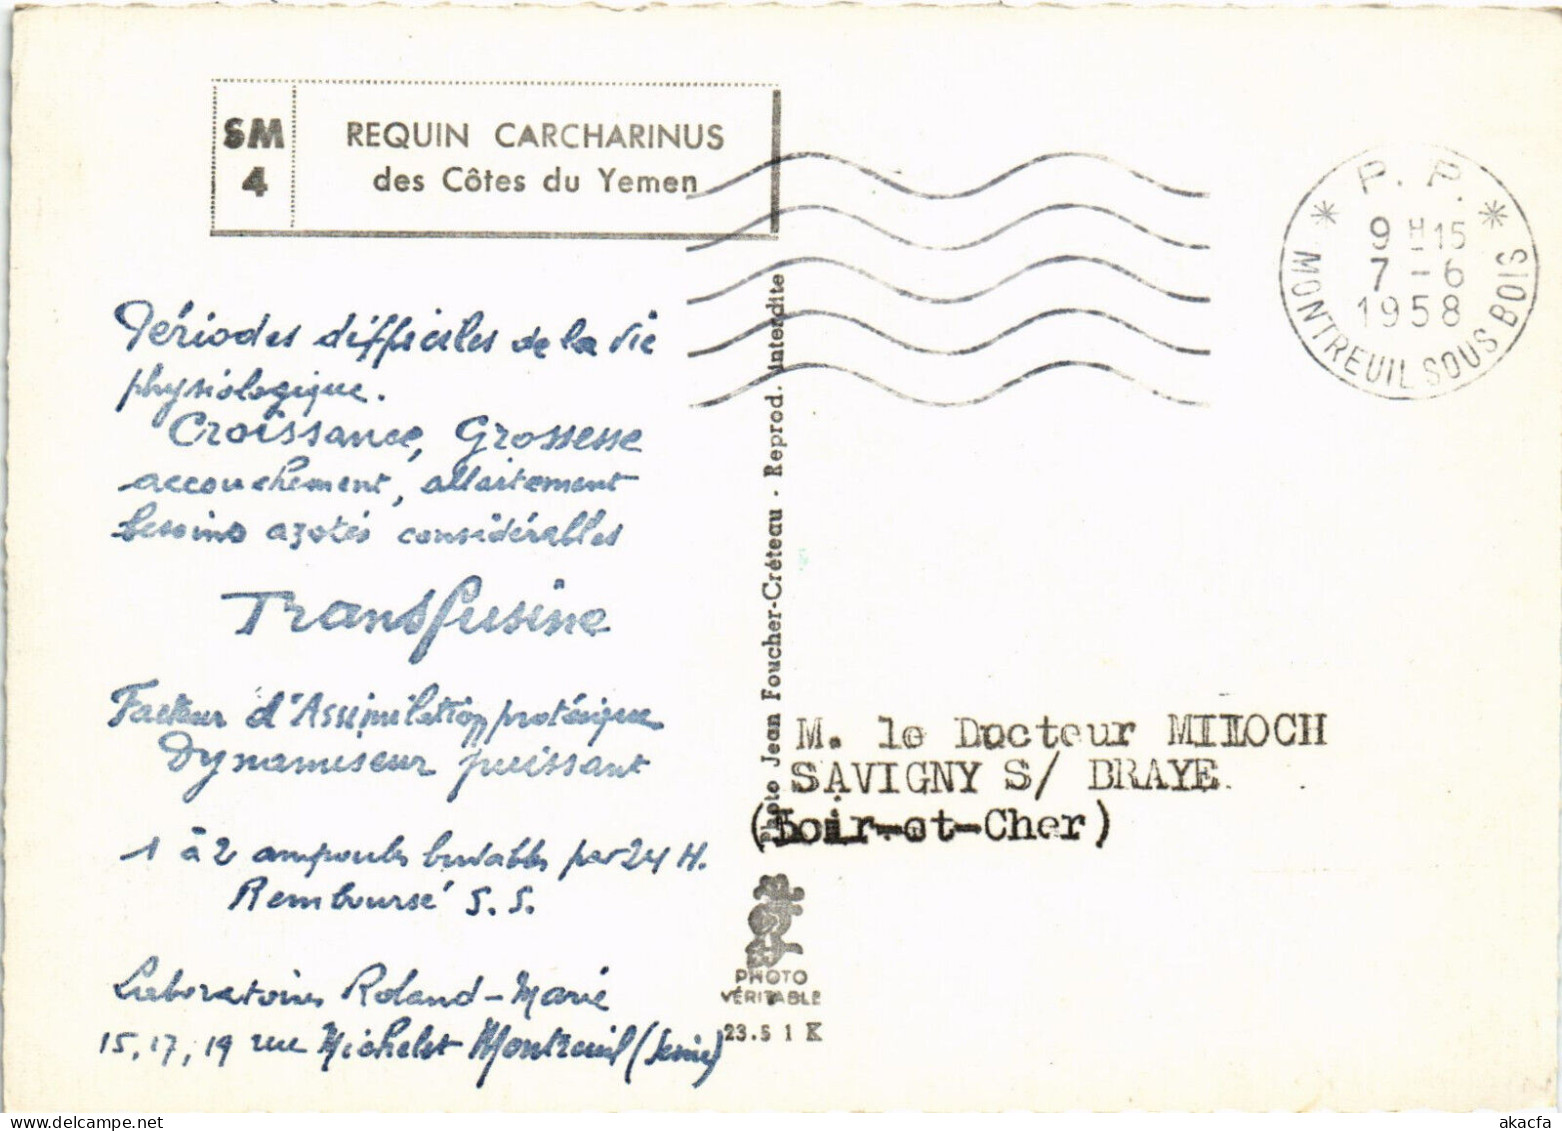 SM
4
REQUIN CARCHARINUS
des Côtes du Yemen
P. P.
9 H 15
7 - 6
1958
MONTREUIL SOUS BOIS
Périodes difficiles de la vie
physiologique.
Croissance, Grossesse
accouchement, allaitement
besoins azotés considérables
Transfusine
Facteur d'Assimilation protéique
Dynamiseur puissant
1 à 2 ampoules buvables par 24 H.
Remboursé S. S.
Laboratoires Roland-Marie
15, 17, 19 rue Michelet Montreuil (Seine)
Photo Jean Foucher-Créteau - Reprod. interdite
M. le Docteur MILOCH
SAVIGNY S/ BRAYE
(Loir-et-Cher)
PHOTO
VÉRITABLE
23.5 1 K
akacfa